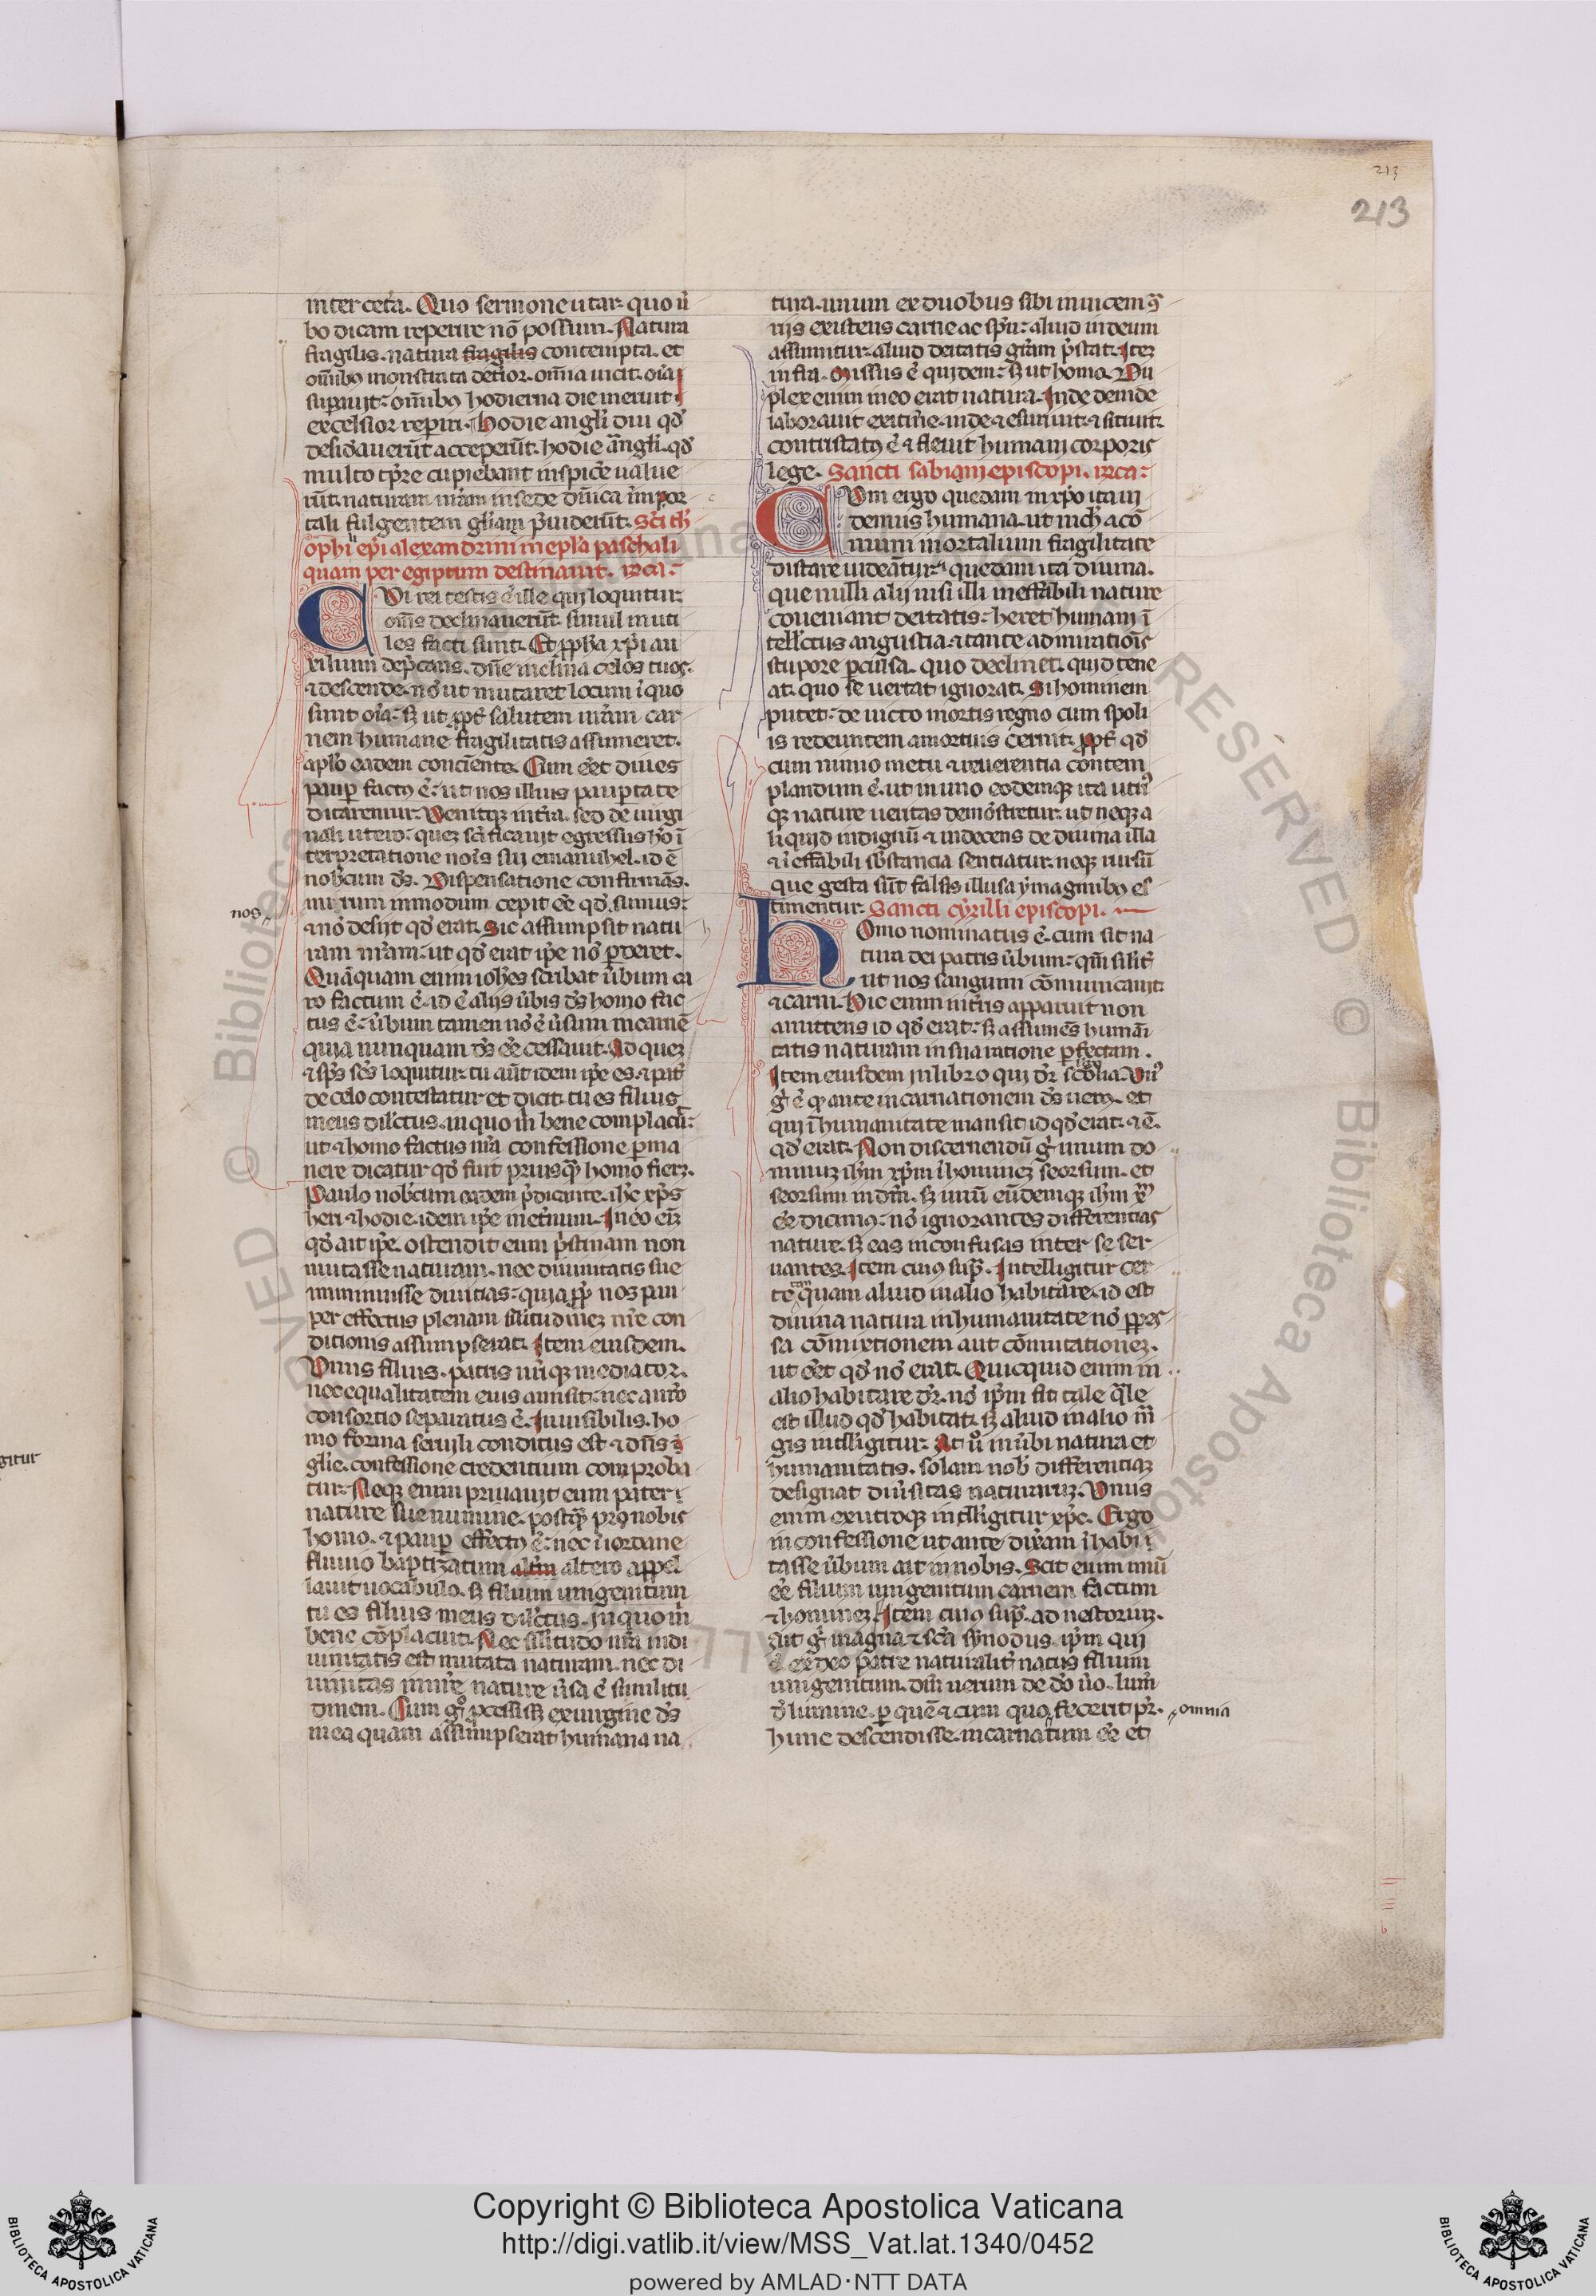 213
213
inter cet̃a. Quo sermone utar quo ũ
bo dicam reperire nõ possum. Natura
fragilis. natura fragilis contempta. et
oĩnibꝫ monstrata det̃ior. omnia uicit. oĩa
sup̃auit. oĩnibꝫ hodierna die meruit
excelsior rep̃iri. Hodie angli diu qđ
desid̃auerũt acceperũt. hodie ãngli. qđ
multo tp̃re cupiebant inspice ualue
rũt. naturam nr̃am in sede dñica ĩmor
tali fulgentem gl̃iam p̃uiderũt. Sc̃i th̃
ophili ep̃i alexandrini in epl̃a paschali
quam per egiptum destinauit. ırca.
Cui rei testis ẽ ille qui loquitur
oms̃ declinauerũt. simul inuti
les facti sunt. Et ꝓph̃a xp̃i au
xilium dep̃cans. dñe inclina celos tuos.
⁊ descende. nõ ut mutaret locum ĩ quo
sunt oĩa. sꝫ ut ꝓpt̃ salutem nr̃am car
nem humane fragilitatis assumeret.
aplõ eadem concinente. Cum eẽt diues
paup̃ factꝰ ẽ. ut nos illius paup̃tate
ditaremur. Venitqꝫ in tr̃a. sed de uirgi
nali utero. quẽ sc̃ificauit egressus hõ ĩ
terpretatione noĩs sui emanuhel. id ẽ
nob̃cum dš. Dispensatione confirmãs.
mirum inmodum cepit eẽ qđ sumus.
nos
⁊ nõ desijt qđ erat. Sic assumpsit natu
ram nr̃am. ut qđ erat ip̃e nõ p̃deret.
Quãquam enim ioh̃es scribat ũbum ca
ro factum ẽ. id ẽ alijs ũbis dš homo fac
tus ẽ. ũbum tamen nõ ẽ ũsum in carnẽ
quia nunquam dš eẽ cessauit. Ad quez
⁊ sp̃s sc̃s loquitur. tu aũt idem ip̃e es. ⁊ pat̃
de celo contestatur et dicit. tu es filius
meus dilc̃tus. in quo m̃ bene complacui.
ut ⁊ homo factus nr̃a confessione p̃ma
nere dicatur qđ fuit priusqꝫ homo fieret.
Paulo nob̃cum eadem p̃dicante. ih̃c xp̃s
heri ⁊ hodie. idem ip̃e in et̃num. In eo eñ
qđ ait ip̃e. ostendit eum p̃stinam non
mutasse naturam. nec diuinitatis sue
imminuisse diuitias. quia ꝓpt̃ nos pau
per effectus plenam silitudinez nr̃e con
ditionis assumpserat. Item eiusdem.
Vnus filius. patris nr̃iqꝫ mediator.
nec equalitatem eius amisit. nec a nr̃o
consortio separatus ẽ. Inuisibilis. ho
mo forma seruili conditus est ⁊ dñs
gl̃ie. confessione credentium comproba
tur. Neqꝫ enim priuauit eum pater
nature sue numine. postqꝫ pro nobis
homo. ⁊ paup̃ effectꝰ ẽ. nec ĩ iordane
fluuio baptizatum altim altero appel
lauit uocabulo. sꝫ filium unigenitum
tu es filius meus dilc̃tus. in quo m̃
bene cõplacuit. Nec silitudo nr̃a in di
uinitatis est mutata naturam. nec di
uinitas in nr̃e nature ũsa ẽ similitu
dinem. Cum gͦ p̃cessisset ex uirgine dš
in ea quam assumpserat humana na
tura. unum ex duobus sibi inuicem ꝯ
rijs existens carne ac sp̃u. aliud in deum
assumitur. aliud deitatis grãm p̃stat. Itez
infra. Missus ẽ quidem. sꝫ ut homo. Du
plex enim in eo erat natura. Inde deinde
laborauit ex itin̄e. inde ⁊ esuriuit. ⁊ sitiuit.
contristatꝰ ẽ ⁊ fleuit humani corporis
lege. Sancti fabiani episcopi. ırca.
Cum ergo quedam in xp̃o ita ui
demus humana. ut nich̃ a cõ
muni mortalium fragilitate
distare uideãtur. ⁊ quedam ita diuina.
que nulli alij nisi illi ineffabili nature
coueniant deitatis. heret humani ĩ
tellc̃tus angustia. ⁊ tante admirationis
stupore p̃cussa. quo declinet. quid tene
at. quo se uertat ignorat. Si hominem
putet. de uicto mortis regno cum spoli
is redeuntem a mortuis cernit. ꝓpt̃ qđ
cum nimio metu ⁊ reuerentia contem
plandum ẽ. ut in uno eodemqꝫ ita utri
qꝫ nature ueritas demõstretur. ut neqꝫ a
liquid indignũ ⁊ indecens de diuina illa
⁊ ĩeffabili sb̃stancia sentiatur. neqꝫ rursũ
que gesta sũt falsis illusa ymaginibꝫ es
timentur. Sancti cyrilli episcopi.
Homo nominatus ẽ. cum sit na
tura dei patris ũbum. qm̃ silit̃
ut nos sanguini cõmunicauit
⁊ carni. Hic enim in tr̃is apparuit non
amittens id qđ erat. sꝫ assumẽs humãi
tatis naturam in sua ratione p̃fectam.
Item eiusdem in libro qui dr̃ scolia. Vnꝰ
gͥ ẽ q̃ ante incarnationem dš uerꝰ. et
qui ĩ humanitate mansit id qđ erat. ⁊ ẽ.
qđ erat. Non discernendũ gͥ unum do
minuz ih̃m xp̃m ĩ hominez seorsum. et
seorsum in dm̃. sꝫ unũ eũdemqꝫ ih̃m xp̃m
eẽ dicimꝰ. nõ ignorantes differentias
nature. sꝫ eas inconfusas inter se ser
uantes. Item cuiꝰ sup̃. Intelligitur cer
te quam aliud in alio habitare. id est
diuina natura in humanitate nõ ꝑpes
sa cõmixtionem aut cõmutationez.
ut eẽt qđ nõ erat. Quicquid enim in
alio habitare dr̃. nõ ip̃m fit tale q̃le
est illud qđ habitat. sꝫ aliud in alio m̃
gis intelligitur. At uͦ in ũbi natura et
humanitatis. solam nob̃ differentiaz
designat diũsitas naturarũ. Vnus
enim ex utroqꝫ intelligitur xp̃c. Ergo
in confessione ut ante dixeram ĩhabi
tasse ũbum ait in nobis. Scit enim unũ
eẽ filium unigenitum carnem factum
⁊ hominez. Item cuiꝰ sup̃. ad nestoriũ.
Ait gͥ magna ⁊ sc̃a synodus. ip̃m qui
ẽ ex deo patre naturalit̃ natus filium
unigenitum. dm̃ uerum de dõ ũo. lum̃
đ lumine. p̃ quẽ ⁊ cum quo fecerit pr̃.
omnia
hunc descendisse. incarnatum eẽ et
gitur
Copyright © Biblioteca Apostolica Vaticana
http://digi.vatlib.it/view/MSS_Vat.lat.1340/0452
powered by AMLAD·NTT DATA
BIBLIOTECA APOSTOLICA VATICANA
BIBLIOTECA APOSTOLICA VATICANA